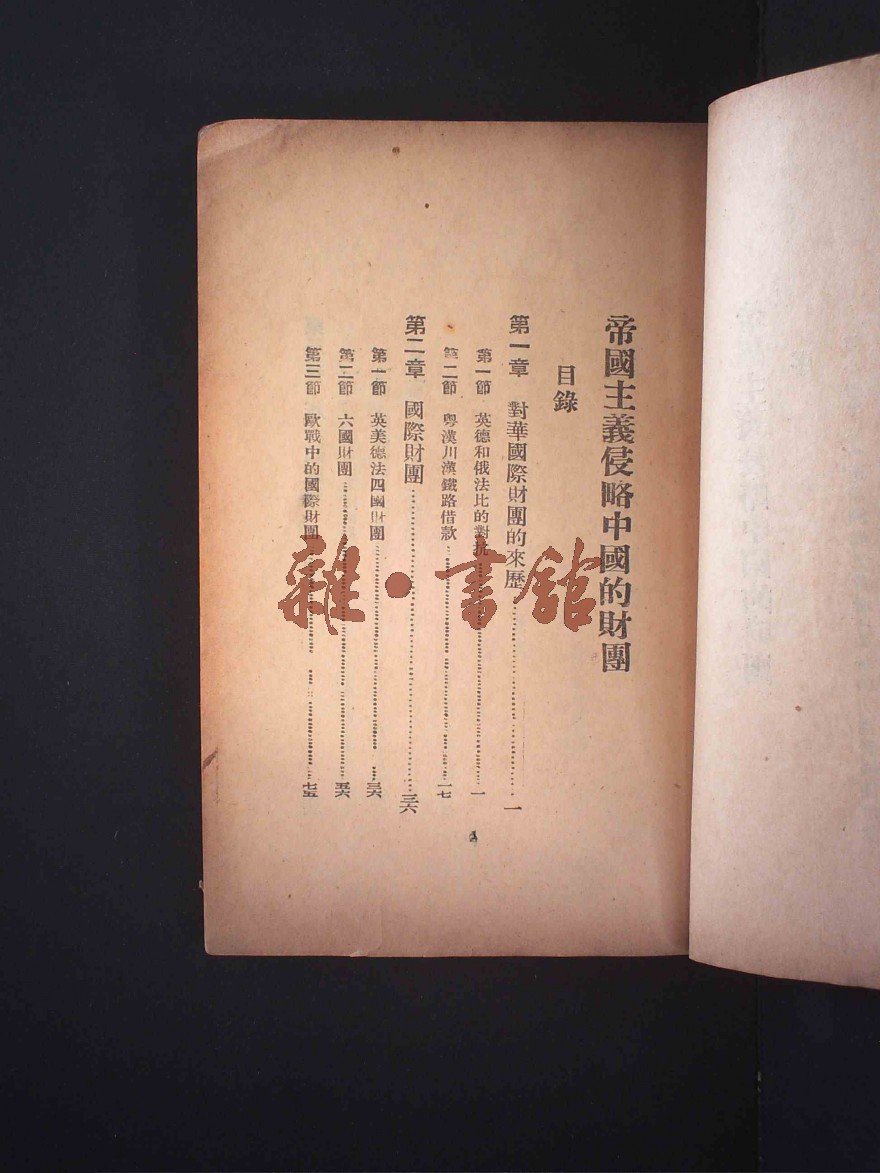 帝國主義侵略中國的財團
目錄
第一章 對華國際財團的來歷……………一
第一節 英德和俄法比的對抗……………一
第二節 粵漢川漢鐵路借款……………一七
第二章 國際財團……………三六
第一節 英美德法四國財團……………三六
第二節 六國財團……………五六
第三節 歐戰中的國際財團……………七五
1
雜·書館